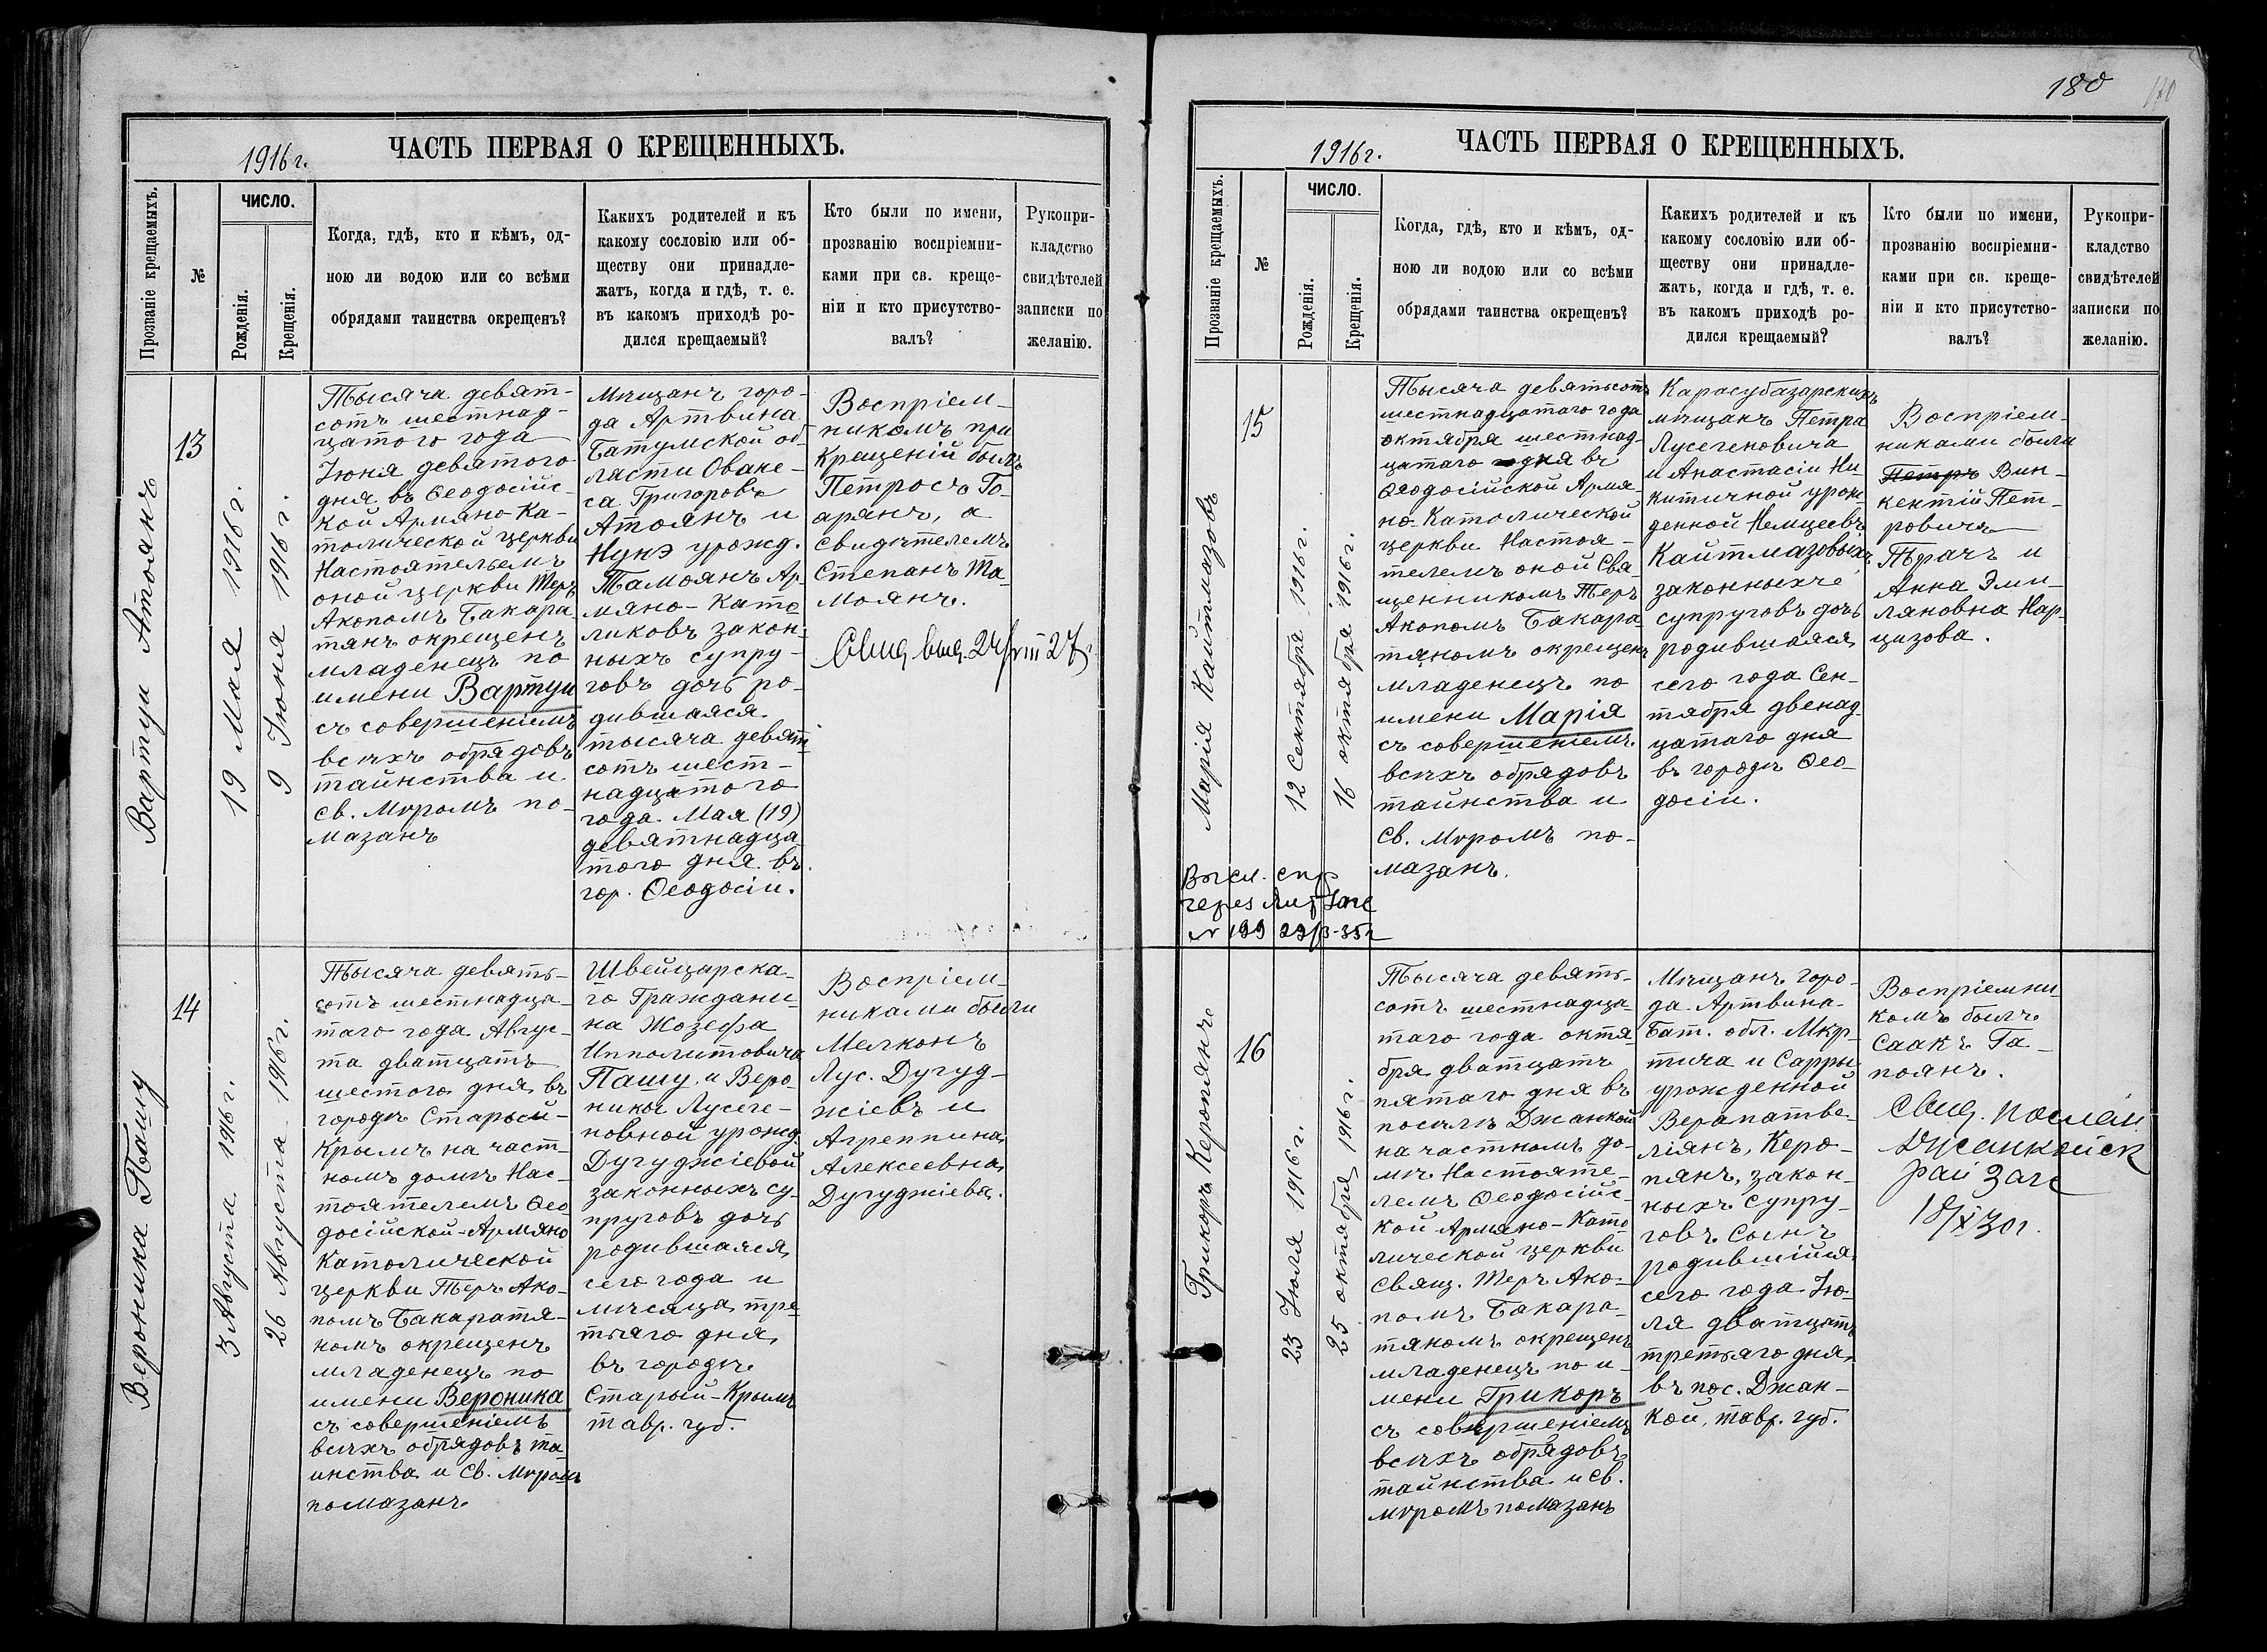 1916 г.
ЧАСТЬ ПЕРВАЯ О КРЕЩЕННЫХЪ.
Прозваніе крещаемыхъ.
№
ЧИСЛО.
Рожденія.
Крещенія.
Когда, гдѣ, кто и кѣмъ, од-
ною ли водою или со всѣми
обрядами таинства окрещенъ?
Какихъ родителей и къ
какому сословію или об-
ществу они принадле-
жатъ, когда и гдѣ, т. е.
въ какомъ приходѣ ро-
дился крещаемый?
Кто были по имени,
прозванію воспріемни-
ками при св. креще-
ніи и кто присутство-
валъ?
Рукопри-
кладство
свидѣтелей
записки по
желанію.
Вартуи Атоянъ
13
19 Мая 1916 г.
9 Іюня 1916 г.
Тысяча девят-
сотъ шестнад-
цатого года
Іюня девятого
дня въ Ѳеодосійс-
кой Армяно-Ка-
толической церкви
Настоятельемъ
оной церкви Теръ
Акопомъ Бакара-
тянъ окрещенъ
младенецъ по
имени Вартуи
съ совершеніемъ
всѣхъ обрядовъ
таинства и
св. Мѵромъ по-
мазанъ
Мѣщанъ горо-
да Артвина
Батумской об-
ласти Ована-
са Григоровъ
Атоянъ и
Нунэ урожд.
Тамоянъ Ар-
мяно-Като
ликовъ закон-
ныхъ супру-
говъ дочь ро-
дившаяся
тысяча девят
сотъ шест-
надцатого
года Мая (19)
девятнадца
того дня въ
гор. Ѳеодосіи.
Воспріем-
никомъ при
Крещеній былъ
Петросъ Го-
арянъ, а
Свидѣтелемъ
Степанъ Та-
моянъ.
Вероника Пашу
14
3 Августа 1916 г.
26 Августа 1916 г.
Тысяча девять-
сотъ шестнадца-
таго года Авгус-
та дватцать
шестого дня въ
городѣ Старый-
Крымъ на част-
номъ домѣ Нас-
тоятелемъ Ѳео
досійской-Армяно
Католической
церкви Теръ Ако-
помъ Бакаратя-
номъ окрещенъ
младенецъ по
имени Вероника
съ совершеніемъ
всѣхъ обрядовъ та
инства и Св. Мѵромъ
помазанъ
Швейцарска-
го Граждани-
на Жозефа
Ипполитовича
Пашу и Веро-
ники Лусеге-
новной урожд.
Дугуджіевой
законныхъ су-
пруговъ дочь
родившаяся
сего года и
мѣсяца тре
тьяго дня
въ городѣ
Старый-Крымъ
тавр. губ.
Воспріем-
никами были
Мелконъ
Лус. Дугуд-
жіевъ и
Агреппина
Алексеевна
Дугуджіева.
180
1916 г.
ЧАСТЬ ПЕРВАЯ О КРЕЩЕННЫХЪ.
Прозваніе крещаемыхъ.
№
ЧИСЛО.
Рожденія.
Крещенія.
Когда, гдѣ, кто и кѣмъ, од-
ною ли водою или со всѣми
обрядами таинства окрещенъ?
Какихъ родителей и къ
какому сословію или об-
ществу они принадле-
жатъ, когда и гдѣ, т. е.
въ какомъ приходѣ ро-
дился крещаемый?
Кто были по имени,
прозванію воспріемни-
ками при св. креще-
ніи и кто присутство-
валъ?
Рукопри-
кладство
свидѣтелей
записки по
желанію.
Марія Кайтмазовъ
15
12 Сентября 1916 г.
16 октября 1916 г.
Тысяча девятьсотъ
шестнадцатаго года
октября шестнад-
цатаго дня въ
Ѳеодосійской Армя-
но-Католической
церкви Настоя-
телемъ оной Свя-
щенникомъ Теръ
Акопомъ Бакара-
тяномъ окрещенъ
младенецъ по
имени Марія
съ совершеніемъ
всѣхъ обрядовъ
таинства и
Св. Мѵромъ по-
мазанъ.
Карасубазарскихъ
мѣщанъ Петра
Лусегеновича
и Анастасіи Ни-
китичной урож
денной Немцеевъ
Кайтмазовыхъ
законныхъ
супруговъ дочь
родившаяся
сего года Сен-
тября двенад-
цатаго дня
въ городѣ Ѳео-
досіи.
Воспріем-
никами были
Петръ Вин-
кентій Пет-
ровичъ
Тѣрачъ и
Анна Эми-
ляновна Нар-
цизова.
Высл. спр
через
№ 199 29/3-35 г
Грикоръ Керопянъ
16
23 Іюля 1916 г.
25 октября 1916 г.
Тысяча девять-
сотъ шестнадца-
таго года октя-
бря дватцать
пятаго дня въ
поселѣ Джанкой
на частномъ до-
мѣ Настояте-
лемъ Ѳеодосійс-
кой Армяно-Като
лической церкви
Свящ. Теръ Ако-
помъ Бакара-
тяномъ окрещенъ
младенецъ по и-
мени Грикоръ
съ совершеніемъ
всѣхъ обрядовъ
таинства и Св.
мѵромъ помазанъ
Мѣщанъ горо-
да Артвина
Бат. обл. Мкр-
тича и Сарры
урожденной
Верапатве-
ліянъ, Керо-
пянъ, закон-
ныхъ супру-
говъ Сынъ
родившійся
сего года Ію-
ля дватцать
третьяго дня
въ пос. Джан-
кой, тавр. губ.
Воспріемни-
комъ былъ
Саакъ Га-
поянъ.
Свид. послан
Джанкойск
рай Загс
18/X 30 г.